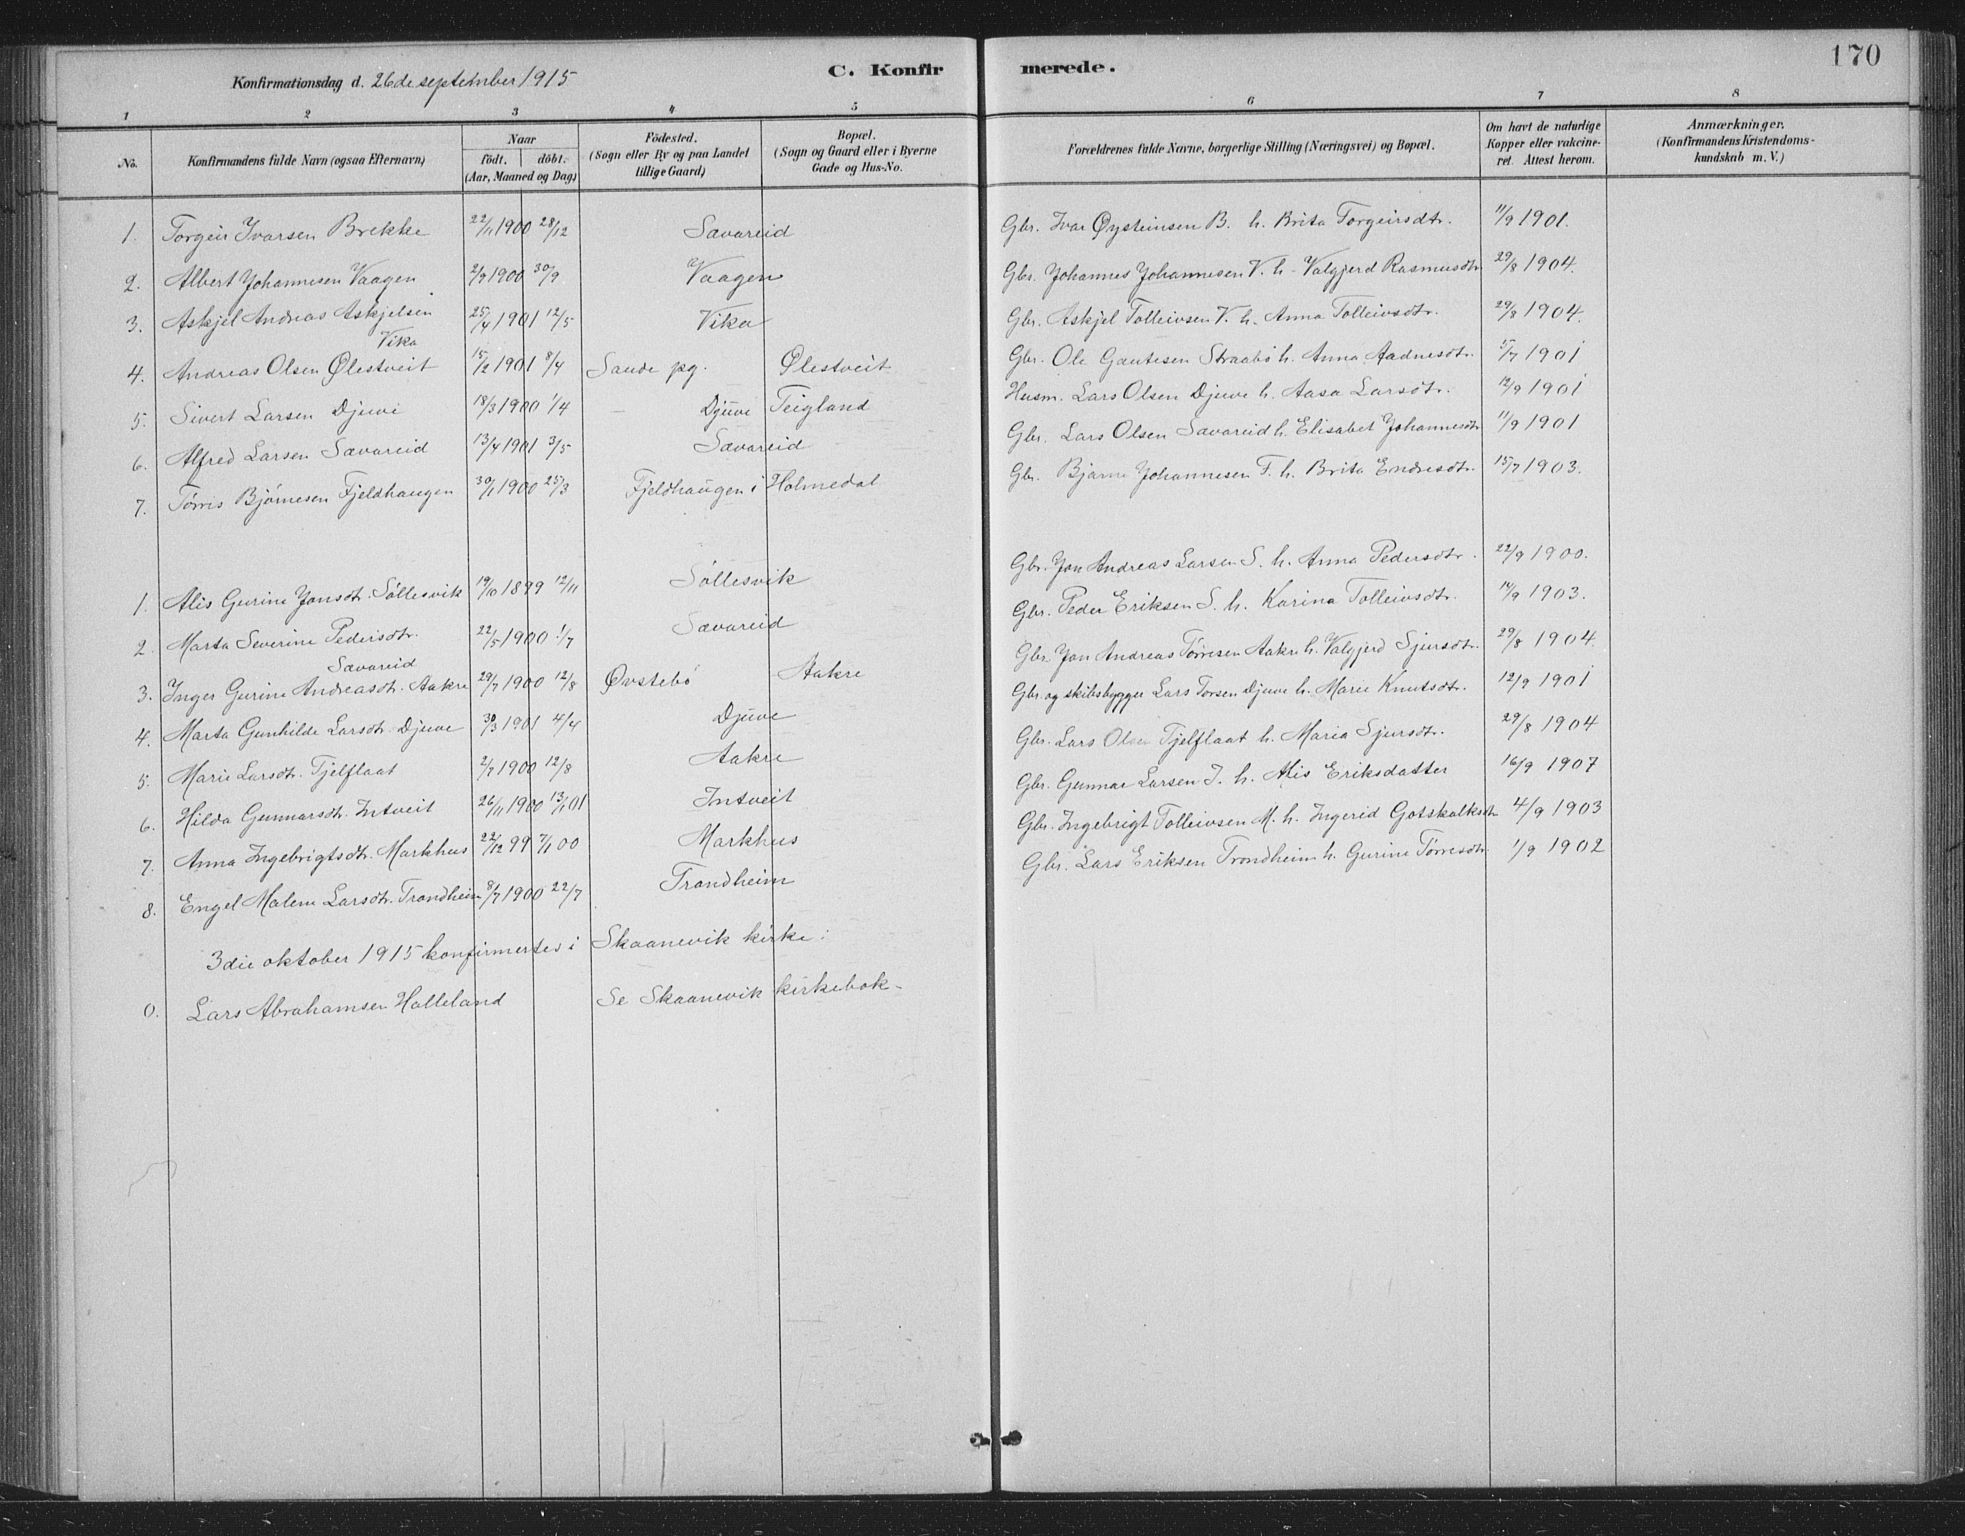 170
Konfirmationsdag d. 26de september 1915
C. Konfirmerede.
1 2 3 4 5 6 7 8
No.
Konfirmandens fulde Navn (ogsaa Efternavn)
Naar
födt. döbt.
(Aar, Maaned og Dag)
Födested.
(Sogn eller By og paa Landet
tillige Gaard)
Bopæl.
(Sogn og Gaard eller i Byerne
Gade og Hus-No.
Forældrenes fulde Navne, borgerlige Stilling (Næringsvei) og Bopæl.
Om havt de naturlige
Kopper eller vakcine-
ret. Attest herom.
Anmærkninger.
(Konfirmandens Kristendoms-
kundskab m. V.)
1. Torgeir Ivarsen Brekke 22/11 1900 28/12 Sævareid Gbr. Ivar Øysteinsen B. h. Brita Torgeirsdtr. 11/9 1901.
2. Albert Johannesen Vaagen 2/9 1900 30/9 Vaagen Gbr. Johannes Johannesen V. h. Valgjerd Rasmusdtr 29/8 1904.
3. Askjel Andreas Askjelsen 25/4 1901 12/5 Vika Gbr. Askjel Tolleivsen V. h. Anna Tolleivsdtr. 29/8 1904.
Vika
4. Andreas Olsen Ølestveit 15/2 1901 8/4 Sande pg. Ølestveit Gbr. Ole Gautesen Straabö h. Anna Aadnesdtr. 5/7 1901
5. Sivert Larsen Djuve 18/3 1900 1/4 – Djuve Teigland Husm. Lars Olsen Djuve h. Aasa Larsdtr. 12/9 1901
6. Alfred Larsen Sævareid 13/4 1901 3/5 Sævareid Gbr. Lars Olsen Sævareid h. Elisabet Johannesdtr 11/9 1901
7. Tørris Bjørnesen Fjeldhaugen 30/1 1900 25/3 Fjeldhaugen i Holmedal Gbr. Bjarne Johannesen F. h. Brita Endresdtr. 15/7 1903.
1. Alis Gurine Jonsdtr. Söllesvik 19/10 1899 12/11 Söllesvik Gbr. Jon Andreas Larsen S. h. Anna Pedersdtr. 22/9 1900.
2. Marta Severine Pedersdtr. 22/5 1900 1/7 Sævareid Gbr. Peder Eriksen S. h. Karina Tolleivsdtr. 14/9 1903.
Sævareid
3. Inger Gurine Andreasdtr. Aakre 29/7 1900 12/8 Øvstebö Aakre Gbr. Jon Andreas Tørresen Aakre h. Valgjerd Sjursdtr. 29/8 1904.
4. Marta Gunhilde Larsdtr. Djuve 30/3 1901 4/4 Djuve Gbr. og skibsbygger Lars Torsen Djuve h. Marie Knutsdtr. 12/9 1901
5. Marie Larsdtr. Tjelflaat 2/7 1900 12/8 Aakre Gbr. Lars Olsen Tjelflaat h. Maria Sjursdtr. 29/8 1904
6. Hilda Gunnarsdtr. Intveit 26/11 1900 13/1 01 Intveit Gbr. Gunnar Larsen I. h. Alis Eriksdatter 16/9 1907
7. Anna Ingebrigtsdtr. Markhus 22/12 99 7/1 00 Markhus Gbr. Ingebrigt Tolleivsen M. h. Ingerid Gotskalksdtr 4/9 1903
8. Engel Malene Larsdtr. Trondheim 8/7 1900 22/7 Trondheim Gbr. Lars Eriksen Trondheim h. Gurine Tørresdtr. 1/9 1902
3die oktober 1915 konfirmertes i Skaanevik kirke:
0. Lars Abrahamsen Halleland Se Skaanevik kirkebok.